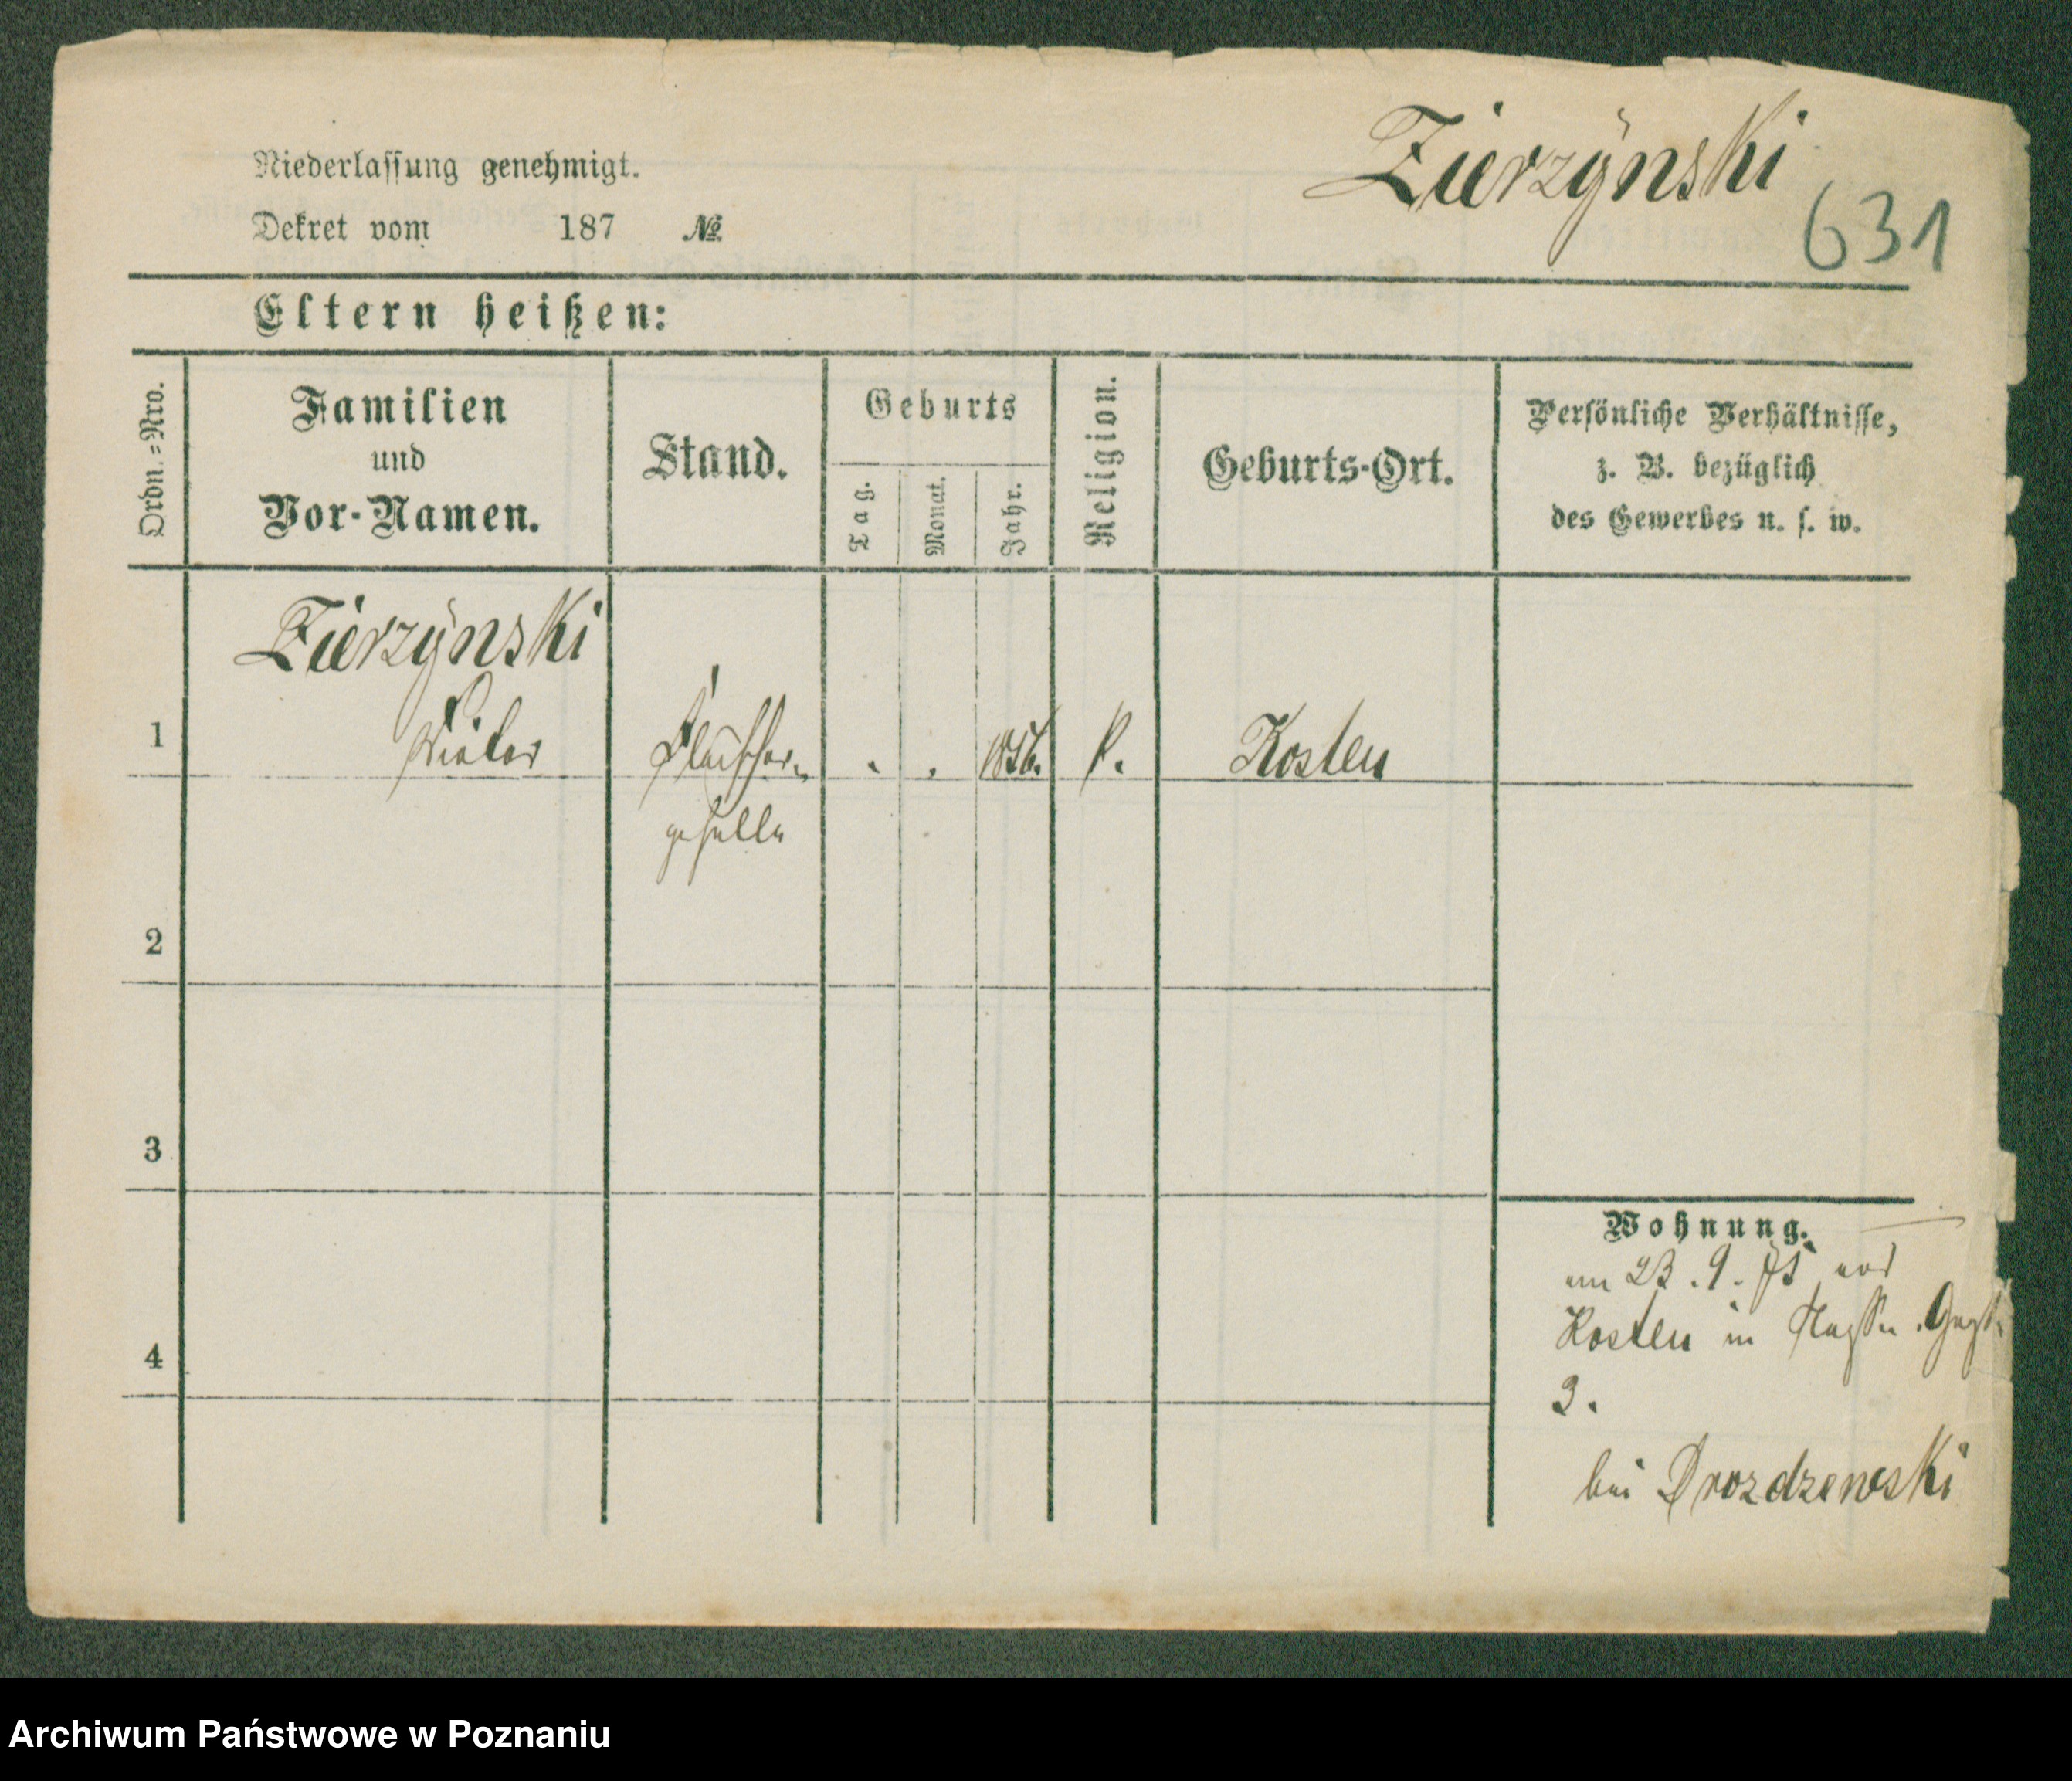 Zierzÿnski
631
Niederlassung genehmigt.
Dekret vom 187 №
Eltern heißen:
Ordn.=Nro.
Familien
und
Vor-Namen.
Stand.
Geburts
Tag.
Monat.
Jahr.
Religion.
Geburts-Ort.
Persönliche Verhältnisse,
z. B. bezüglich
des Gewerbes u. s. w.
Zierzÿnski
1 Fleischer- . . 1856. k. Kosten
geselle
2
3
4
Wohnung.
am 23. 9. 75 von
Kosten in
3.
bei Drozdzewski
Archiwum Państwowe w Poznaniu